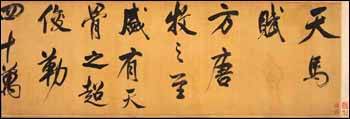 天馬
賦
方唐
牧之至
盛有天
骨之超
俊勒
四十萬